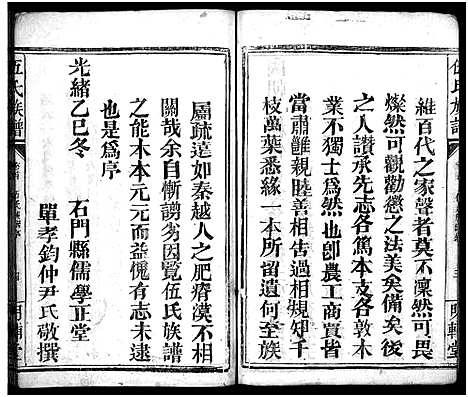 維百代之家聲者莫不凜然可畏
燦然可觀勸懲之法美矣備矣後
之人讃承先志各篤本支各敦木
業不獨士爲然也卽農工商賈皆
當肅雝親睦善相告過相規知千
枝萬葉悉緣一本所留遺何至族
屬疏遠如秦越人之肥瘠漠不相
關哉余自慚謭劣因覽伍氏族譜
之能木本元元而益愧有志未逮
也是爲序
光緒乙巳冬 石門縣儒學正堂
單孝鈞仲尹氏敬撰
伍氏族譜
伍氏族譜
明輔堂